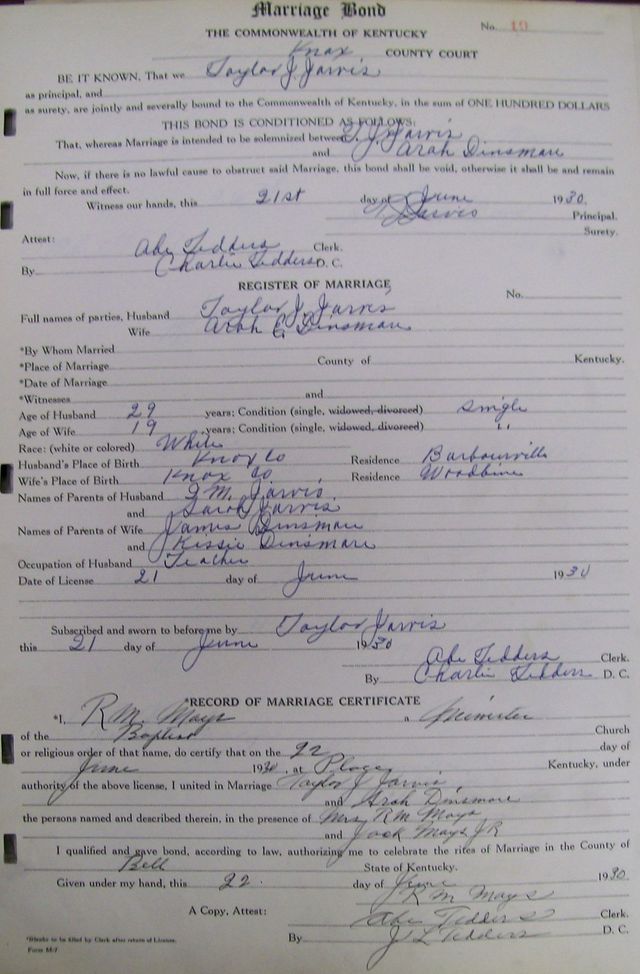 Marriage Bond
No. 19
THE COMMONWEALTH OF KENTUCKY
Knox COUNTY COURT
BE IT KNOWN, That we Taylor J. Jarvis
as principal, and
as surety, are jointly and severally bound to the Commonwealth of Kentucky, in the sum of ONE HUNDRED DOLLARS
THIS BOND IS CONDITIONED AS FOLLOWS:
That, whereas Marriage is intended to be solemnized between T. J. Jarvis
and Arah Dinsmore
Now, if there is no lawful cause to obstruct said Marriage, this bond shall be void, otherwise it shall be and remain
in full force and effect.
Witness our hands, this 21st day of June 1930.
T J Jarvis Principal.
Surety.
Attest:
Abe Tedders Clerk.
By Charlie Tedders D. C.
REGISTER OF MARRIAGE
No.
Full names of parties, Husband Taylor J. Jarvis
Wife Arah E Dinsmore
*By Whom Married
*Place of Marriage County of Kentucky.
*Date of Marriage
*Witnesses and
Age of Husband 29 years; Condition (single, widowed, divorced) Single
Age of Wife 19 years; Condition (single, widowed, divorced) "
Race: (white or colored) White
Husband's Place of Birth Knox Co Residence Barbourville
Wife's Place of Birth Knox Co. Residence Woodbine
Names of Parents of Husband M. Jarvis
and Sarah Jarvis
Names of Parents of Wife James Dinsmore
and Kissie Dinsmore
Occupation of Husband Teacher
Date of License 21 day of June 1930
Subscribed and sworn to before me by Taylor Jarvis
this 21 day of June 1930
Abe Tedders Clerk.
By Charlie Tedders D. C.
*RECORD OF MARRIAGE CERTIFICATE
*I, R. M. Mays a Minister
of the Baptist Church
or religious order of that name, do certify that on the 22 day of
June 1930, at Place Kentucky, under
authority of the above license, I united in Marriage Taylor J Jarvis
and Arah Dinsmore
the persons named and described therein, in the presence of Mrs. RM Mays
and Jack Mays JR
I qualified and gave bond, according to law, authorizing me to celebrate the rites of Marriage in the County of
Bell State of Kentucky.
Given under my hand, this 22. day of June 1930
R M Mays
A Copy, Attest: Abe Tedders Clerk.
By J L Tedders D. C.
*Blanks to be filled by Clerk after return of License.
Form M-7